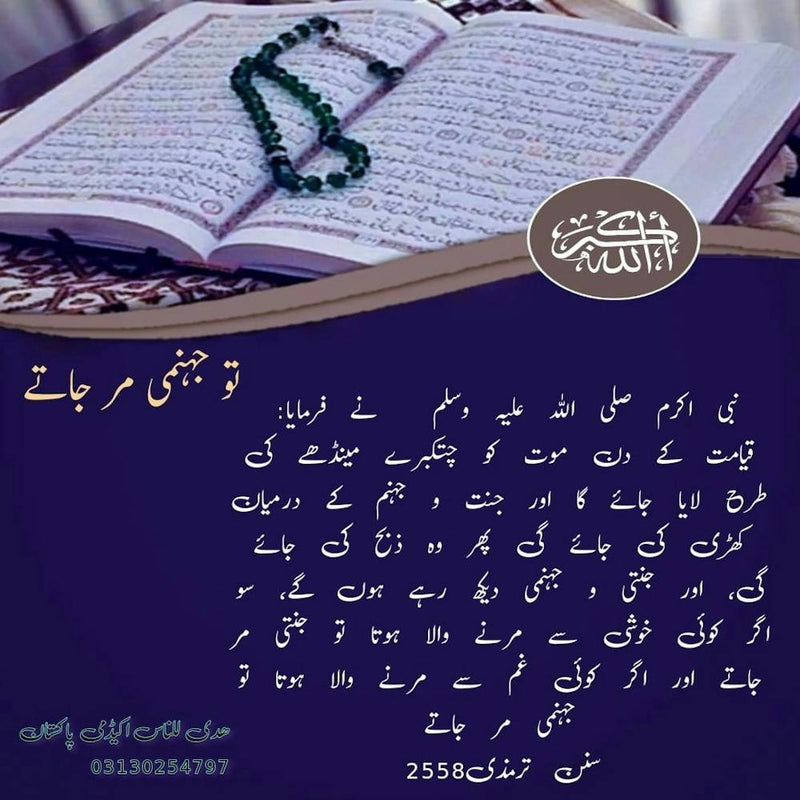 أكبر الله
تو جہنمی مر جاتے
نبی اکرم صلی اللہ علیہ وسلم نے فرمایا:
قیامت کے دن موت کو چتکبرے مینڈھے کی
طرح لایا جائے گا اور جنت و جہنم کے درمیان
کھڑی کی جائے گی پھر وہ ذبح کی جائے
گی، اور جنتی و جہنمی دیکھ رہے ہوں گے، سو
اگر کوئی خوشی سے مرنے والا ہوتا تو جنتی مر
جاتے اور اگر کوئی غم سے مرنے والا ہوتا تو
جہنمی مر جاتے
سنن ترمذی2558
ھدی للناس اکیڈمی پاکستان
03130254797